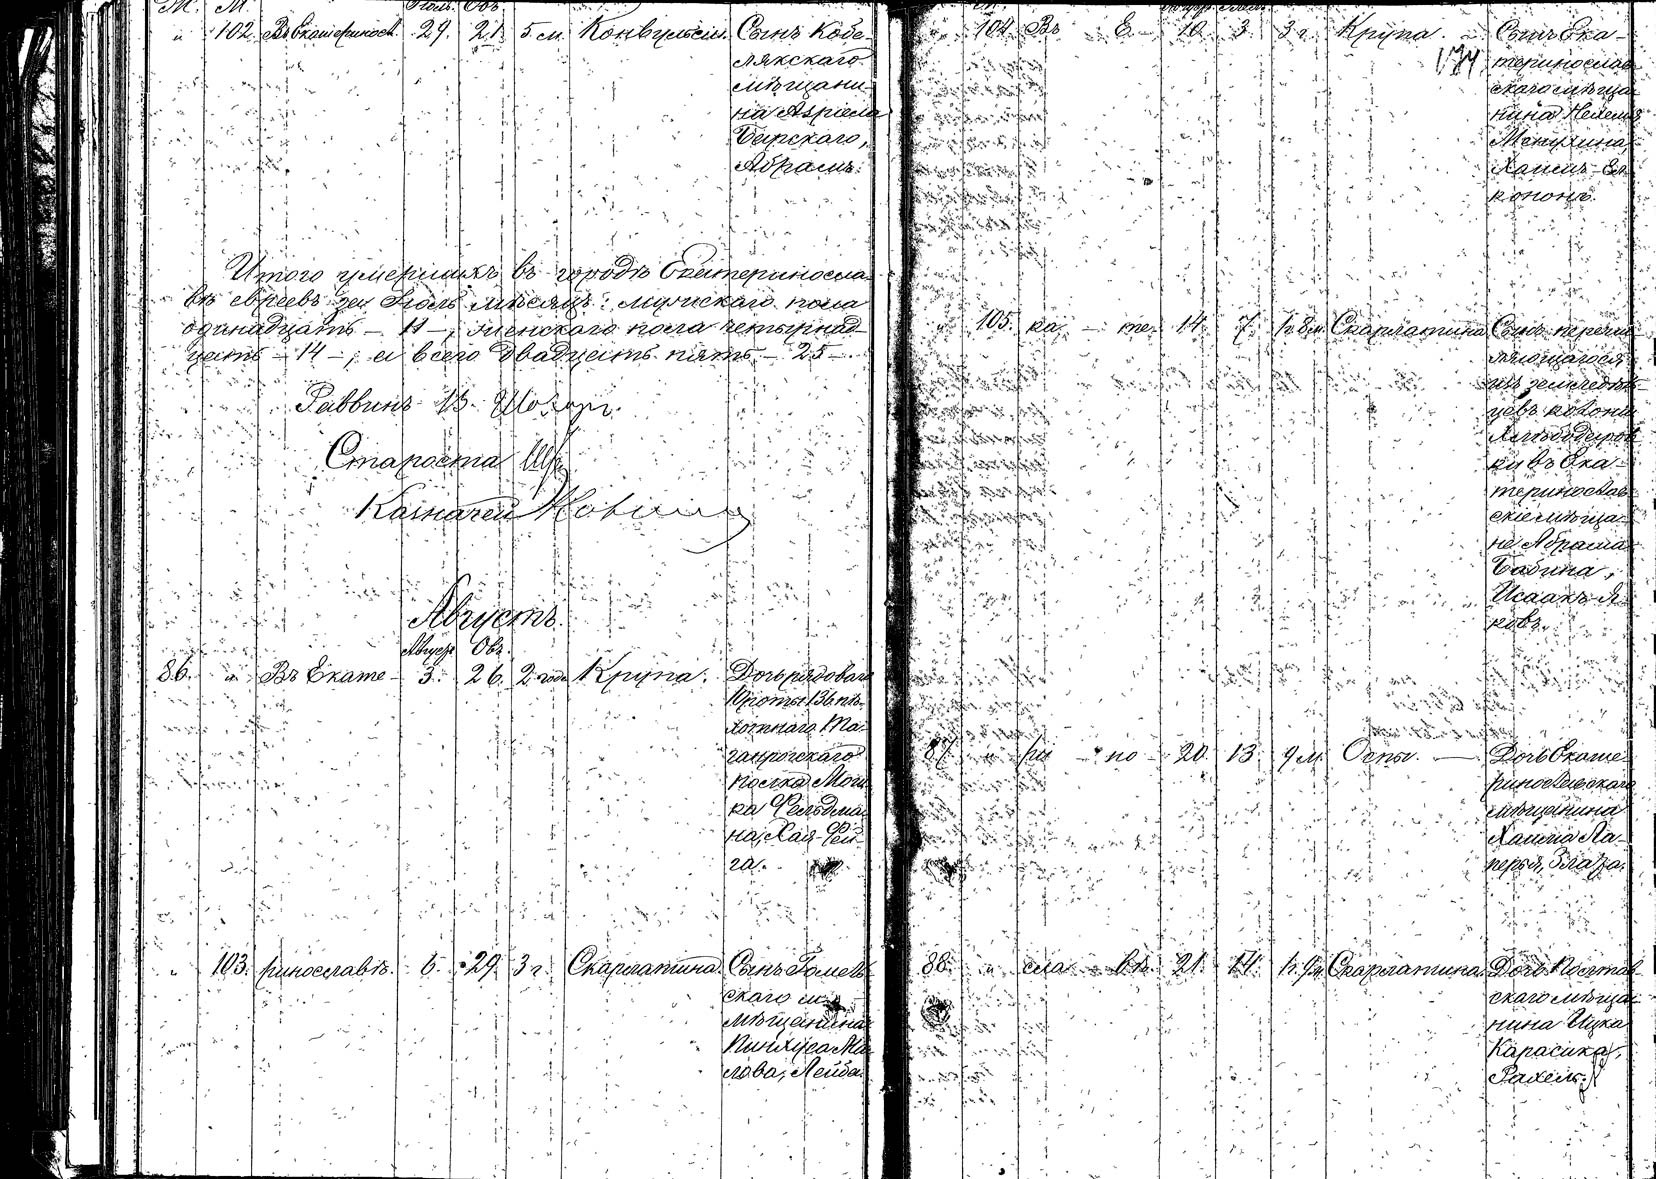 Ж. М. Іюль. Ов.
" 102. Въ Екатериносл. 29. 21. 5 м. Конвульсіи. Сынъ Кобе-
лякскаго
мѣщани-
на Азріела
Барскаго,
Абрамъ.
Итого умершихъ въ городѣ Екатериносла-
вѣ евреевъ за Іюль мѣсяцъ: мужскаго пола
одинадцать - 11 -, женскаго пола четырнад-
цать - 14 -, а всего двадцать пять - 25 -.
Раввинъ В.
Староста
Казначей
Августъ.
Август Овъ.
86. " Въ Екате- 3. 26. 2 года Крупа. Дочь рядоваго
роты 136 пѣ-
хотнаго Та-
ганрогскаго
полка Мош-
ка Фельдма-
на, Хая-Фей-
га.
" 103. ринославѣ. 6. 29. 3 г. Скарлатина. Сынъ Гомель-
скаго
мѣщанина
Пинхуса Ма-
лова, Лейба.
174
" 104. Въ Е- 10. 3. 3 г. Крупа. Сынъ Ека-
теринослав-
скаго мѣща-
нина Нехемія
Менухина,
Хаимъ-
" 105. ка - те- 14. 7. Скарлатина Сынъ перечис-
ляющагося
изъ земледѣль-
цевъ колоніи
ки въ Ека-
теринослав-
скіе мѣща-
не Абрама
Бабина,
Исаакъ-Я-
ковъ.
87. " ри - но- 20. 13. 9 м. Оспы. Дочь Екате-
ринославскаго
мѣщанина
Хаима Ла-
перья, Злата.
88. " сла - вѣ. 21. 14. Скарлатина. Дочь Полтав-
скаго мѣща-
нина Ицка
Карасика,
Рахель.